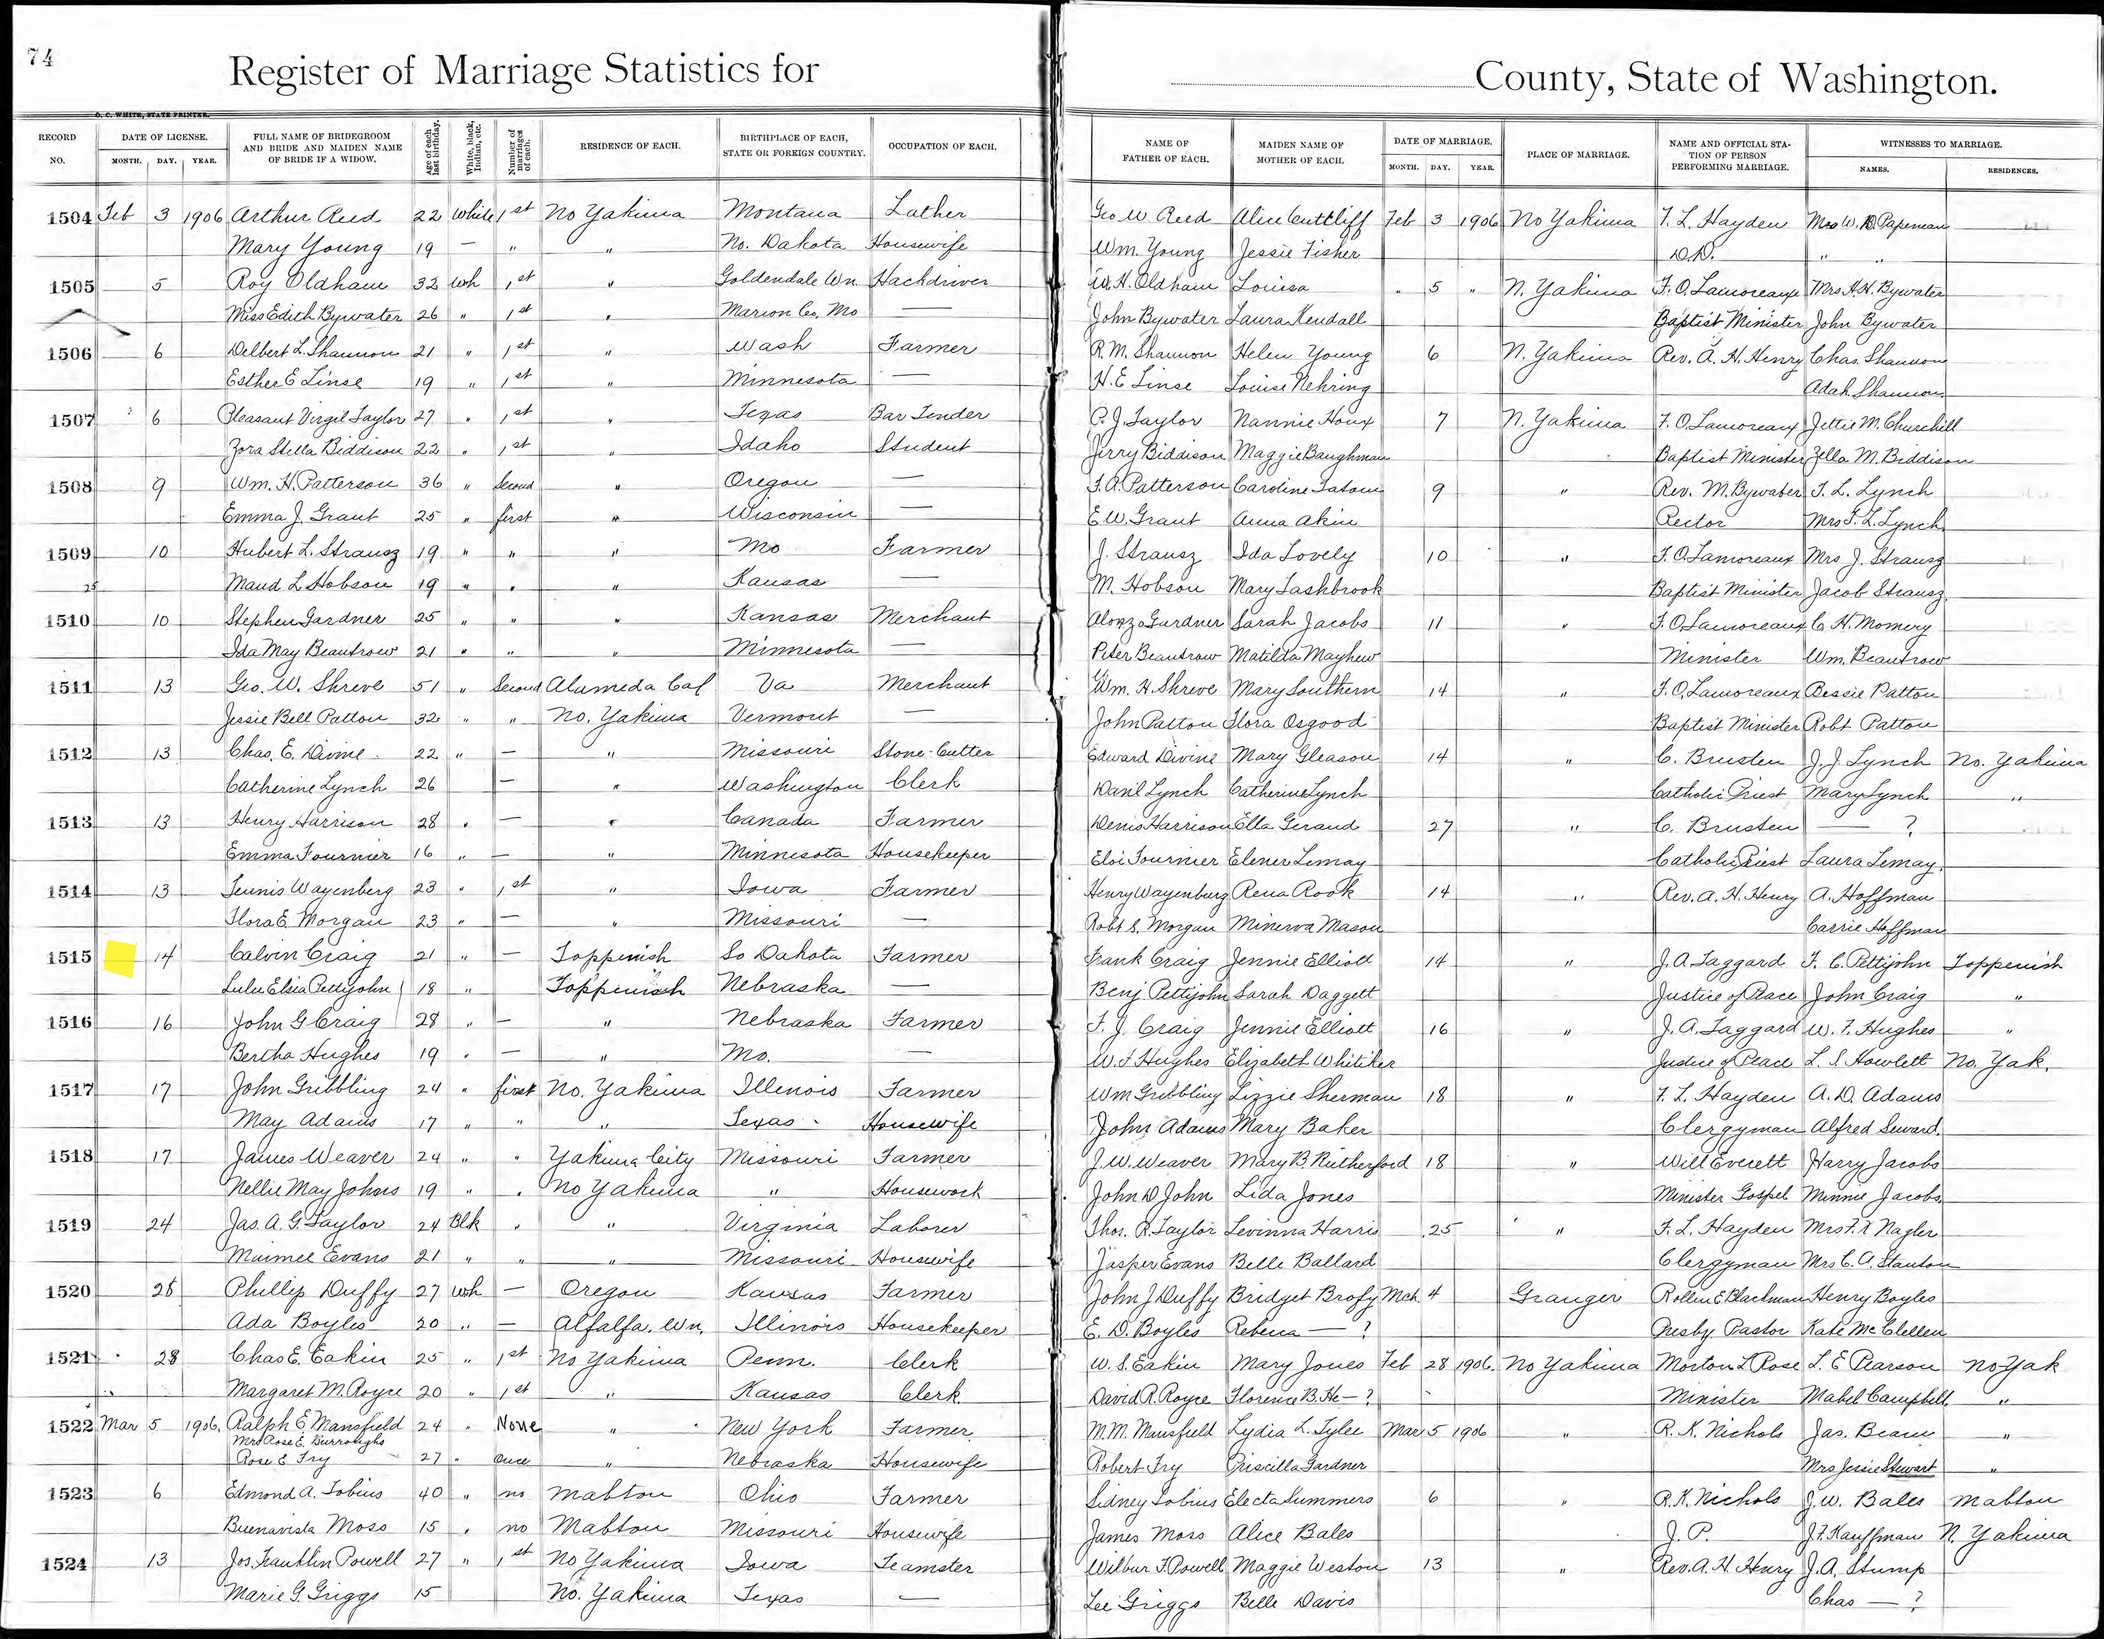 74
Register of Marriage Statistics for County, State of Washington.
O. C. WHITE, STATE PRINTER.
RECORD NO. DATE OF LICENSE. MONTH. DAY. YEAR. FULL NAME OF BRIDEGROOM AND BRIDE AND MAIDEN NAME OF BRIDE IF A WIDOW. Age of each last birthday. White, black, Indian, etc. Number of marriages of each. RESIDENCE OF EACH. BIRTHPLACE OF EACH, STATE OR FOREIGN COUNTRY. OCCUPATION OF EACH. NAME OF FATHER OF EACH. MAIDEN NAME OF MOTHER OF EACH. DATE OF MARRIAGE. MONTH. DAY. YEAR. PLACE OF MARRIAGE. NAME AND OFFICIAL STATION OF PERSON PERFORMING MARRIAGE. WITNESSES TO MARRIAGE. NAMES. RESIDENCES.
1504 Feb 3 1906 Arthur Reed 22 White 1st No Yakima Montana Lather Geo W Reed Alice Cuttliff Feb 3 1906 No Yakima F. L. Hayden Mrs W. D. Papineau
Mary Young 19 — " " No. Dakota Housewife Wm. Young Jessie Fisher D.D. " "
1505 5 Roy Oldham 32 Wh 1st " Goldendale Wn. Hackdriver W. H. Oldham Louisa " 5 " N. Yakima F. O. Lamoreaux Mrs H. H. Bywater
Miss Edith Bywater 26 " 1st " Marion Co, Mo — John Bywater Laura Kendall Baptist Minister John Bywater
1506 6 Delbert L. Shannon 21 " 1st " Wash Farmer R. M. Shannon Helen Young 6 N. Yakima Rev. A. H. Henry Chas. Shannon
Esther E Linse 19 " 1st " Minnesota — H. E Linse Louise Nehring Adah Shannon
1507 6 Pleasant Virgil Taylor 27 " 1st " Texas Bar Tender P. J. Taylor Nannie Houx 7 N. Yakima F. O. Lamoreaux Jettie M. Churchill
Zora Stella Biddison 22 " 1st " Idaho Student Jerry Biddison Maggie Baughman Baptist Minister Zella M. Biddison
1508 9 Wm. H. Patterson 36 " Second " Oregon — F. A. Patterson Caroline Tatom 9 " Rev. M. Bywater T. L. Lynch
Emma J. Grant 25 " first " Wisconsin — E W. Grant Anna Akin Rector Mrs T. L. Lynch
1509 10 Hubert L. Strausz 19 " " " Mo Farmer J. Strausz Ida Lovely 10 " F. O. Lamoreaux Mrs J. Strausz
25 Maud L Hobson 19 " " " Kansas — M. Hobson Mary Lashbrook Baptist Minister Jacob Strausz
1510 10 Stephen Gardner 25 " " " Kansas Merchant Alonzo Gardner Sarah Jacobs 11 " F. O. Lamoreaux C. H. Momery
Ida May Beautrow 21 " " " Minnesota — Peter Beautrow Matilda Mayhew Minister Wm. Beautrow
1511 13 Geo. W. Shreve 51 " Second Alameda Cal Va Merchant Wm. H. Shreve Mary Southern 14 " F. O. Lamoreaux Bessie Patton
Jessie Bell Patton 32 " " No. Yakima Vermont — John Patton Flora Osgood Baptist Minister Robt Patton
1512 13 Chas. E. Divine 22 " — " Missouri Stone-Cutter Edward Divine Mary Gleason 14 " C. Brusten J. J. Lynch No. Yakima
Catherine Lynch 26 — " Washington Clerk Danl Lynch Catherine Lynch Catholic Priest Mary Lynch "
1513 13 Henry Harrison 28 " — " Canada Farmer Denis Harrison Ella Geraud 27 " C. Brusten — ?
Emma Fournier 16 " — " Minnesota Housekeeper Eloi Fournier Elener Lemay Catholic Priest Laura Lemay
1514 13 Teunis Wayenberg 23 " 1st " Iowa Farmer Henry Wayenburg Rena Rook 14 " Rev. A. H. Henry A. Hoffman
Flora E Morgan 23 " — " Missouri — Robt S. Morgan Minerva Mason Carrie Hoffman
1515 14 Calvin Craig 21 " — Toppenish So Dakota Farmer Frank Craig Jennie Elliott 14 " J. A Taggard F. C. Pettijohn Toppenish
Lulu Elsia Pettyjohn 18 " Toppenish Nebraska — Benj Pettijohn Sarah Daggett Justice of Peace John Craig "
1516 16 John G Craig 28 " — " Nebraska Farmer F. J. Craig Jennie Elliott 16 " J. A. Taggard W. F. Hughes "
Bertha Hughes 19 " — " Mo. — W. F Hughes Elizabeth Whitiker Justice of Peace L. S. Howlett No. Yak.
1517 17 John Gribbling 24 " first No. Yakima Illinois Farmer Wm Gribbling Lizzie Sherman 18 " F. L. Hayden A. D. Adams
May Adams 17 " " " Texas Housewife John Adams Mary Baker Clergyman Alfred Seward.
1518 17 James Weaver 24 " " Yakima City Missouri Farmer J. W. Weaver Mary B. Rutherford 18 " Will Everett Harry Jacobs
Nellie May Johns 19 " " No Yakima " Housework John D John Lida Jones Minister Gospel Minnie Jacobs
1519 24 Jas. A. G. Taylor 24 Blk " " Virginia Laborer Thos. R. Taylor Levinna Harris 25 " F. L. Hayden Mrs F. X Nagler
Maimee Evans 21 " " " Missouri Housewife Jasper Evans Belle Ballard Clergyman Mrs C. A. Stanton
1520 28 Phillip Duffy 27 Wh — Oregon Kansas Farmer John J Duffy Bridget Brofy Mch 4 Granger Rollin E Blackman Henry Boyles
Ada Boyles 20 " — Alfalfa. Wn. Illinois Housekeeper E. D. Boyles Rebecca — ? Presby Pastor Kate McClellen
1521 28 Chas E. Eakin 25 " 1st No Yakima Penn. Clerk W. S. Eakin Mary Jones Feb 28 1906. No Yakima Morton L Rose L. E Pearson No Yak
Margaret M. Royce 20 " 1st " Kansas Clerk David R. Royce Florence B. He— ? Minister Mabel Campbell "
1522 Mar 5 1906. Ralph E. Mansfield 24 " None " New York Farmer M. M. Mansfield Lydia L. Tylee Mar 5 1906 " R. K. Nichols Jas. Beam "
Mrs Rose E. Burroughs
Rose E Fry 27 " Once " Nebraska Housewife Robert Fry Priscilla Gardner Mrs Jessie Stewart "
1523 6 Edmond A. Tobius 40 " no Mabton Ohio Farmer Sidney Tobius Electa Summers 6 " R. K. Nichols J. W. Bales Mabton
Buenavista Moss 15 " no Mabton Missouri Housewife James Moss Alice Bales J. P. J. F. Kauffman N. Yakima
1524 13 Jos. Franklin Powell 27 " 1st No Yakima Iowa Teamster Wilbur F. Powell Maggie Weston 13 " Rev. A. H. Henry J. A. Stump
Marie G. Griggs 15 No. Yakima Texas — Lee Griggs Belle Davis Chas — ?